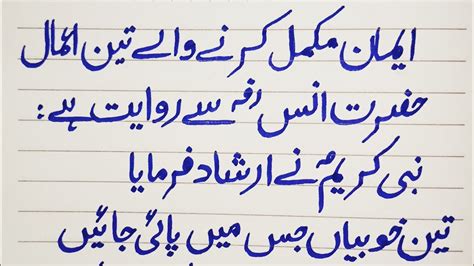 ایمان مکمل کرنے والے تین اعمال
حضرت انس رضہ سے روایت ہے:
نبی کریم ؐ نے ارشاد فرمایا
تین خوبیاں جس میں پائی جائیں